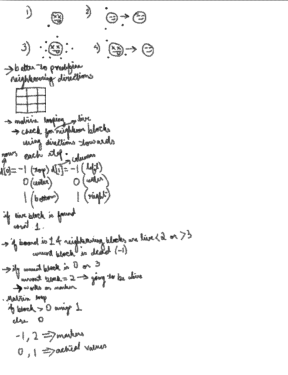 1) 2)
3) 4)
→ better to predefine
neighbouring directions
→ matrix looping live
→ check for neighbour blocks
using directions towards
each step. columns
rows
d[0] = -1 (top) d[1] = -1 (left)
0 (center) 0 (center)
1 (bottom) 1 (right)
if live block is found
count 1.
→ if count is neighbouring blocks are live < 2 or > 3
current block is dead (-1)
→ if current block is 0 or 3
current block = 2 → going to be alive
→ works as marker
. Matrix loop
if block > 0 assign 1
else 0
-1, 2 ⇒ markers
0, 1 ⇒ actual values